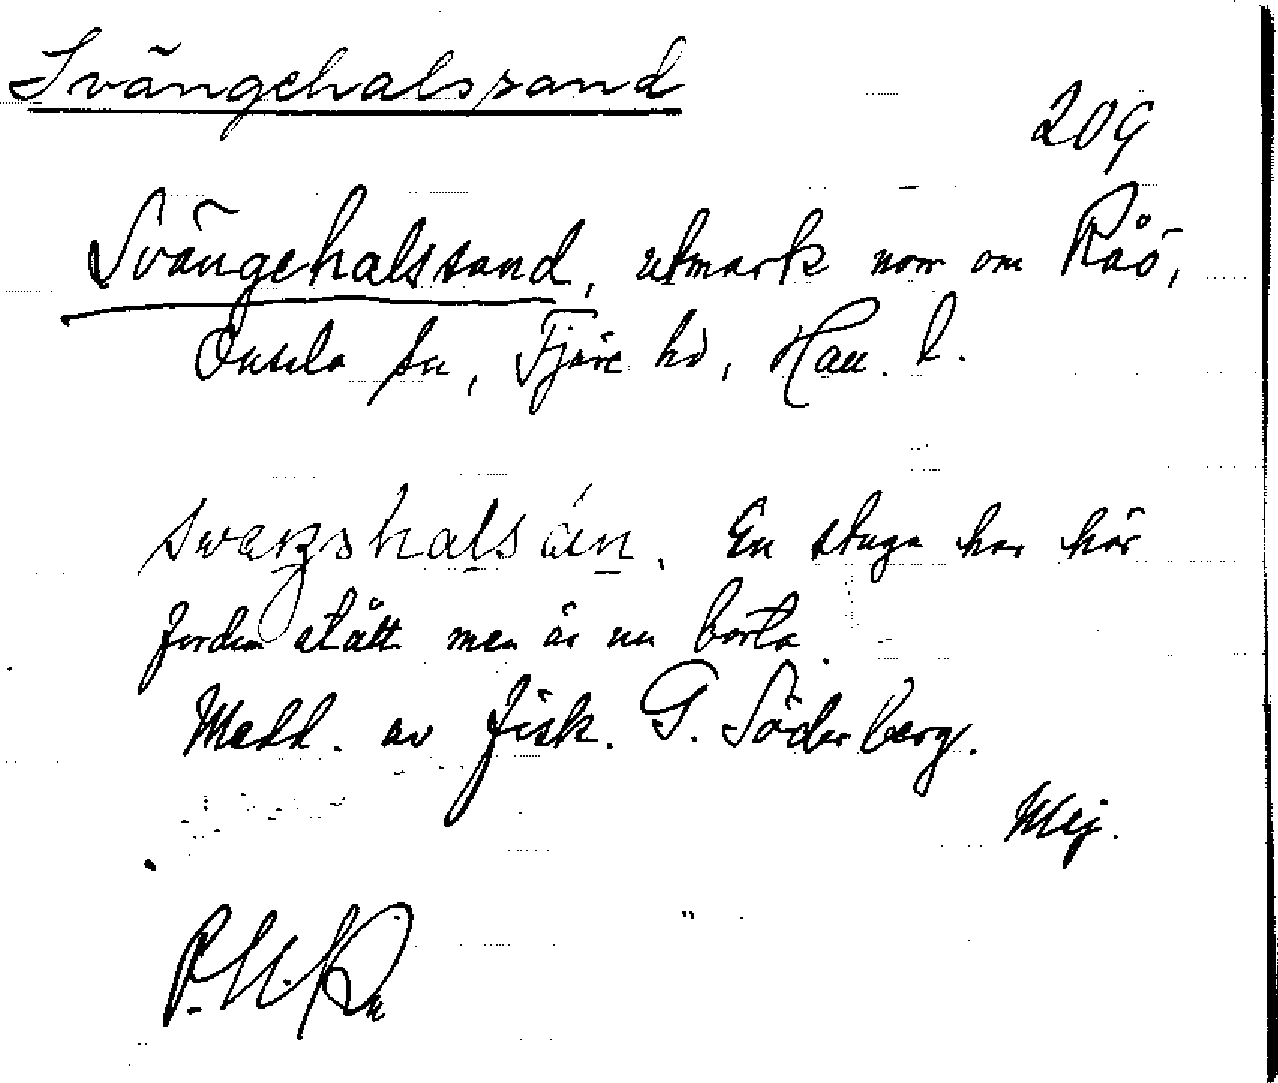 Svängehalssand
209
Svängehalssand, utmark norr om Råö,
Onsala sn, Fjäre hd, Hall. l.
En stuga har här
fordom stått men är nu borta.
Medd. av fisk. G. Söderberg.